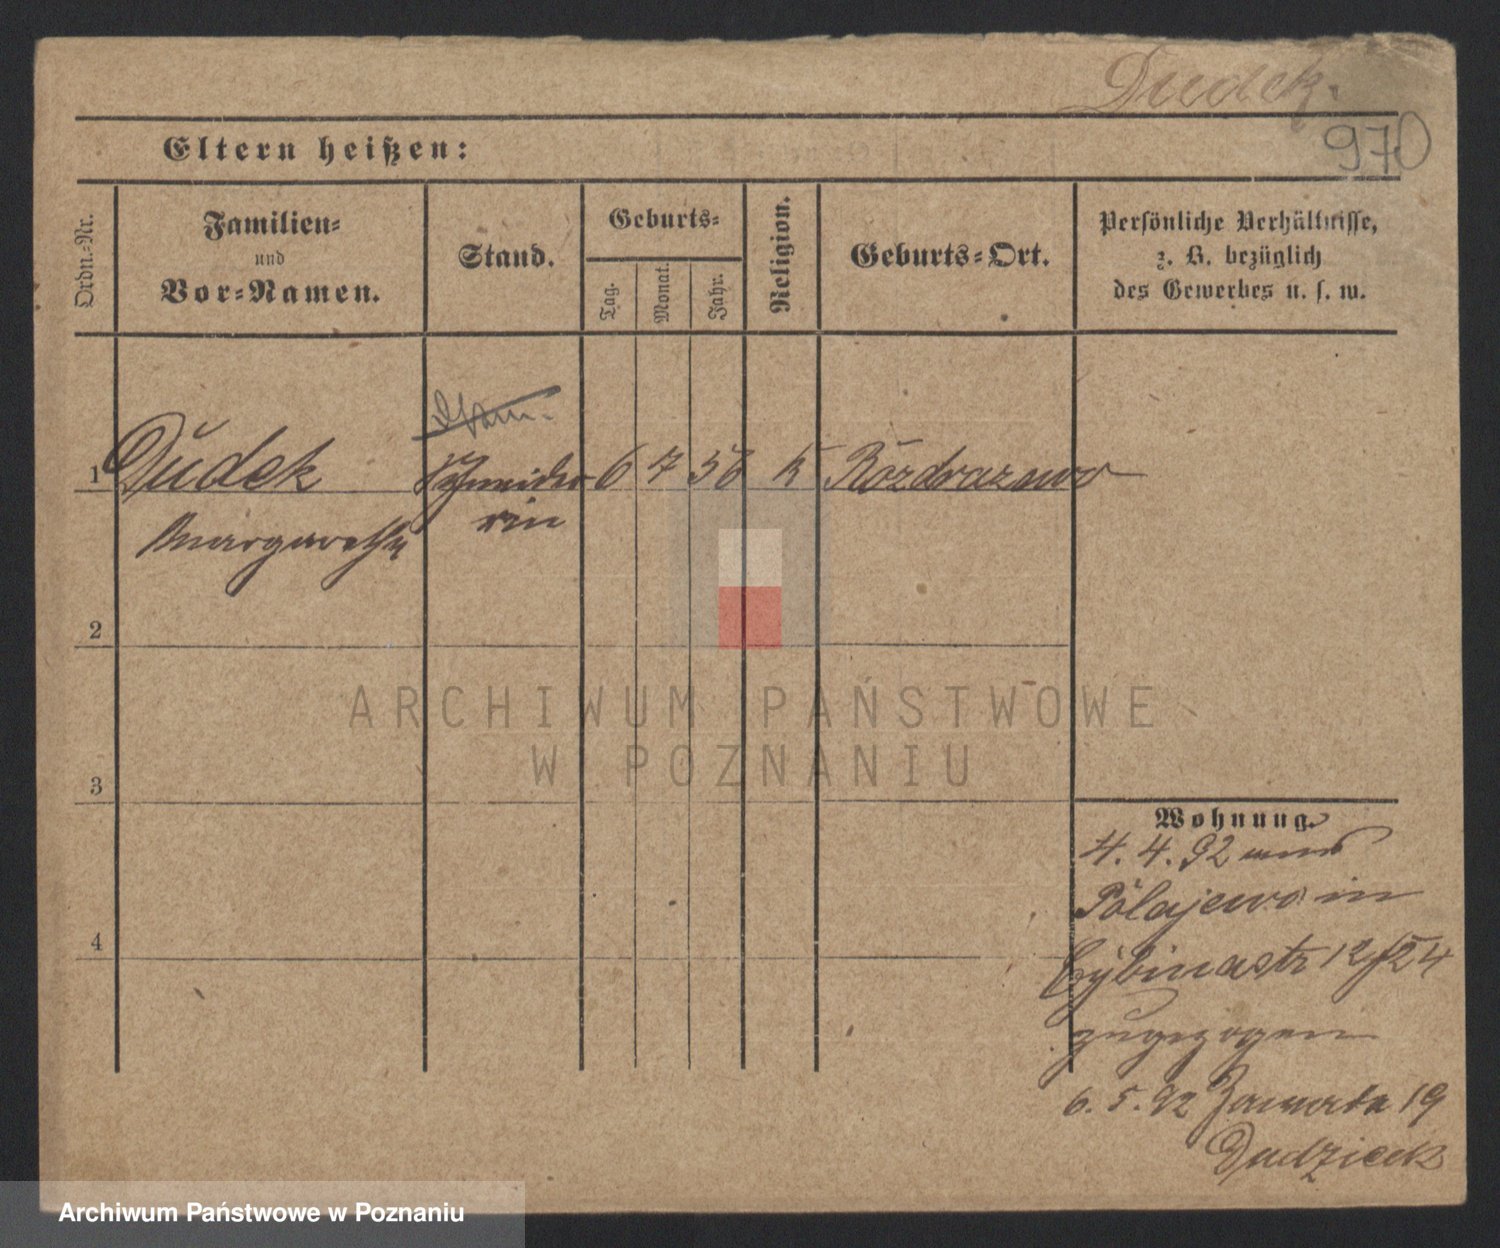 Dudek.
970
Eltern heißen:
Ordn.-Nr.
Familien-
und
Vor-Namen.
Stand.
Geburts-
Tag.
Monat.
Jahr.
Religion.
Geburts-Ort.
Persönliche Verhältnisse,
z. B. bezüglich
des Gewerbes u. s. w.
1 Dudek Schneide 6 7 56 K Rozdrazewo
Margarethe rin
2
3
4
Wohnung.
4. 4. 92 aus
Polajewo in
Cybinastr 12/24
zugezogen
6. 5. 92 Zawada 19
Dudziak
ARCHIWUM PAŃSTWOWE
W POZNANIU
Archiwum Państwowe w Poznaniu